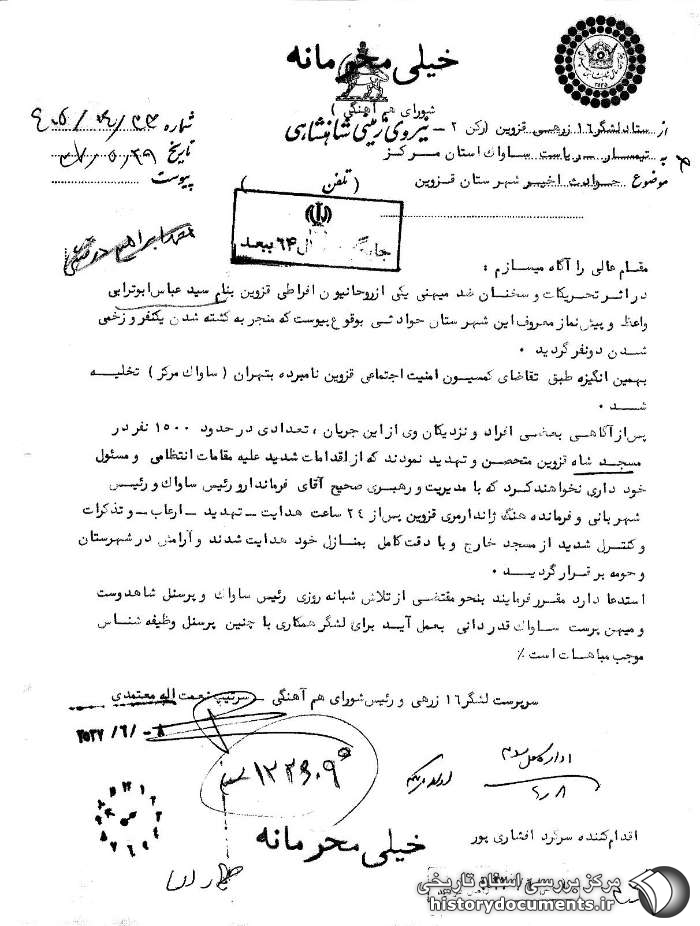 خیلی محرمانه
شورای هم آهنگی )
از ستاد لشگر ۱۶ زرهی قزوین (رکن ۲ - نیروی زمینی شاهنشاهی
به تیمسار ریاست ساواک استان مرکز
موضوع حوادث اخیر شهرستان قزوین ( تلفن )
شماره
تاریخ
پیوست
۶۴ ببعد
مقام عالی را آگاه میسازم :
در اثر تحریکات و سخنان ضد میهنی یکی از روحانیون افراطی قزوین بنام سید عباس ابوترابی
واعظ و پیش نماز معروف این شهرستان حوادثی بوقوع پیوست که منجر به کشته شدن یکنفر و زخمی
شدن دو نفر گردید .
بهمین انگیزه طبق تقاضای کمسیون امنیت اجتماعی قزوین نامبرده بتهران ( ساواک مرکز ) تخلیه
شد .
پس از آگاهی بعضی افراد و نزدیکان وی از این جریان ، تعدادی در حدود ۱۵۰۰ نفر در
مسجد شاه قزوین متحصن و تهدید نمودند که از اقدامات شدید علیه مقامات انتظامی و مسئول
خود داری نخواهند کرد که با مدیریت و رهبری صحیح آقای فرماندار و رئیس ساواک و رئیس
شهربانی و فرمانده هنگ ژاندارمری قزوین پس از ۲۴ ساعت هدایت - تهدید - ارعاب - و تذکرات
و کنترل شدید از مسجد خارج و با دقت کامل بمنازل خود هدایت شدند و آرامش در شهرستان
و حومه برقرار گردید .
استدعا دارد مقرر فرمایند بنحو مقتضی از تلاش شبانه روزی رئیس ساواک و پرسنل شاهدوست
و میهن پرست ساواک قدردانی بعمل آید برای لشگر همکاری با چنین پرسنل وظیفه شناس
موجب مباهات است ٪
سرپرست لشگر ۱۶ زرهی و رئیس شورای هم آهنگی - سرتیپ نعمت اله معتمدی
۲۵۳۷ /۶/ -۸
اداره کل سوم
۶/۸
۱۲۳۶۰۹
اقدام کننده سرگرد افشاری پور
خیلی محرمانه
مرکز بررسی اسناد تاریخی
historydocuments.ir